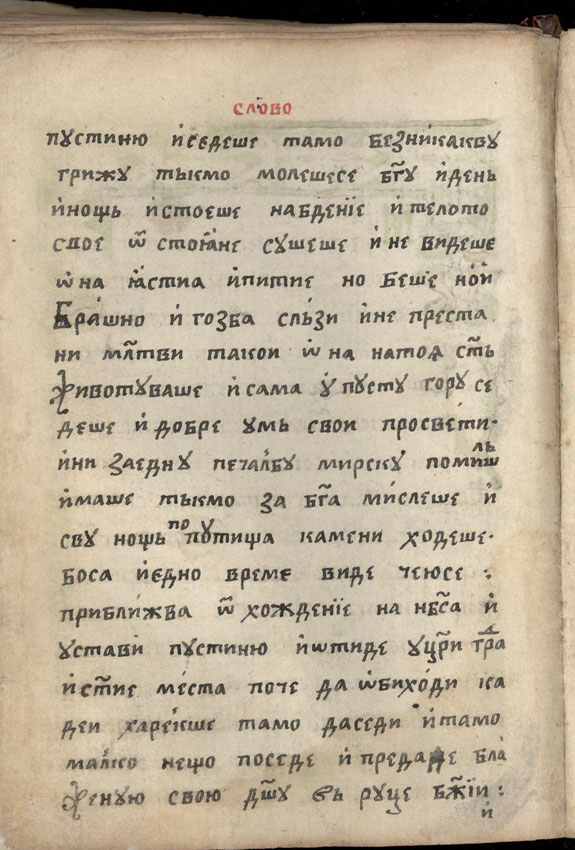 слово
пустиню иседеше тамо безникакву
грижу тькмо молешесе бг҃у идень
инощь истоеше набденїе и телото
свое ѿ стоꙗне сушеше и не видеше
ѡна ꙗстиа ипитие но беше нои
Брашно и гозба сльзи ине преста
ни мл҃тви такои ѡна натоѧ ст҃ь
животуваше исама у пусту гору се
деше и добре умь свои просвети·
ини заедну печалбу мирску помишль
имаше тькмо за бг҃а мислеше и
сву нощь по путища камени ходеше·
боса иедно време виде чеюсе :
приближва ѿ хождениїе на нб҃са и
устави пустиню иѡтиде уцр҃и гра҃д
ист҃ие места поче да ѡбиходи ка
деи харекше тамо даседи · итамо
малко нещо поседе и предаде бла
женую свою дш҃у вь руце бж҃їи :
и